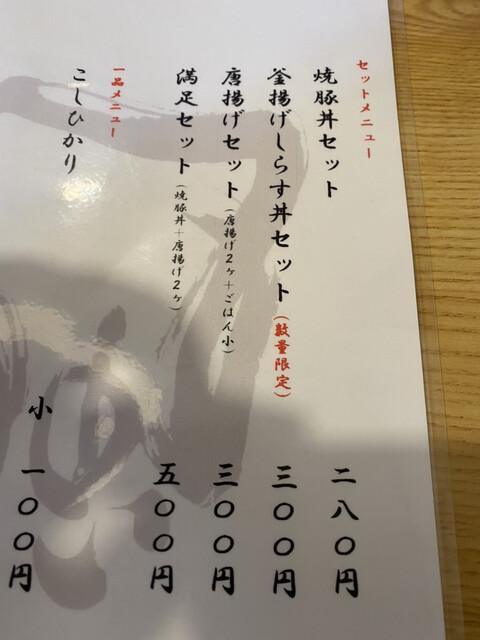 セットメニュー
焼豚丼セット 二八〇円
釜揚げしらす丼セット(数量限定) 三〇〇円
唐揚げセット(唐揚げ2ヶ+ごはん小) 三〇〇円
満足セット(焼豚丼+唐揚げ2ヶ) 五〇〇円
一品メニュー
こしひかり
小 一〇〇円